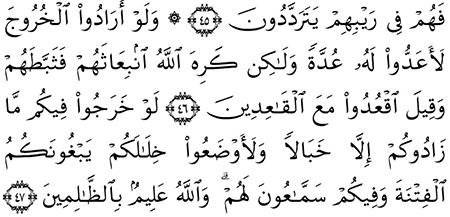 فَهُمْ فِى رَيْبِهِمْ يَتَرَدَّدُونَ ﴿٤٥﴾ ۞ وَلَوْ أَرَادُوا۟ ٱلْخُرُوجَ
لَأَعَدُّوا۟ لَهُۥ عُدَّةً وَلَٰكِن كَرِهَ ٱللَّهُ ٱنۢبِعَاثَهُمْ فَثَبَّطَهُمْ
وَقِيلَ ٱقْعُدُوا۟ مَعَ ٱلْقَٰعِدِينَ ﴿٤٦﴾ لَوْ خَرَجُوا۟ فِيكُم مَّا
زَادُوكُمْ إِلَّا خَبَالًا وَلَأَوْضَعُوا۟ خِلَٰلَكُمْ يَبْغُونَكُمُ
ٱلْفِتْنَةَ وَفِيكُمْ سَمَّٰعُونَ لَهُمْ ۗ وَٱللَّهُ عَلِيمٌۢ بِٱلظَّٰلِمِينَ ﴿٤٧﴾